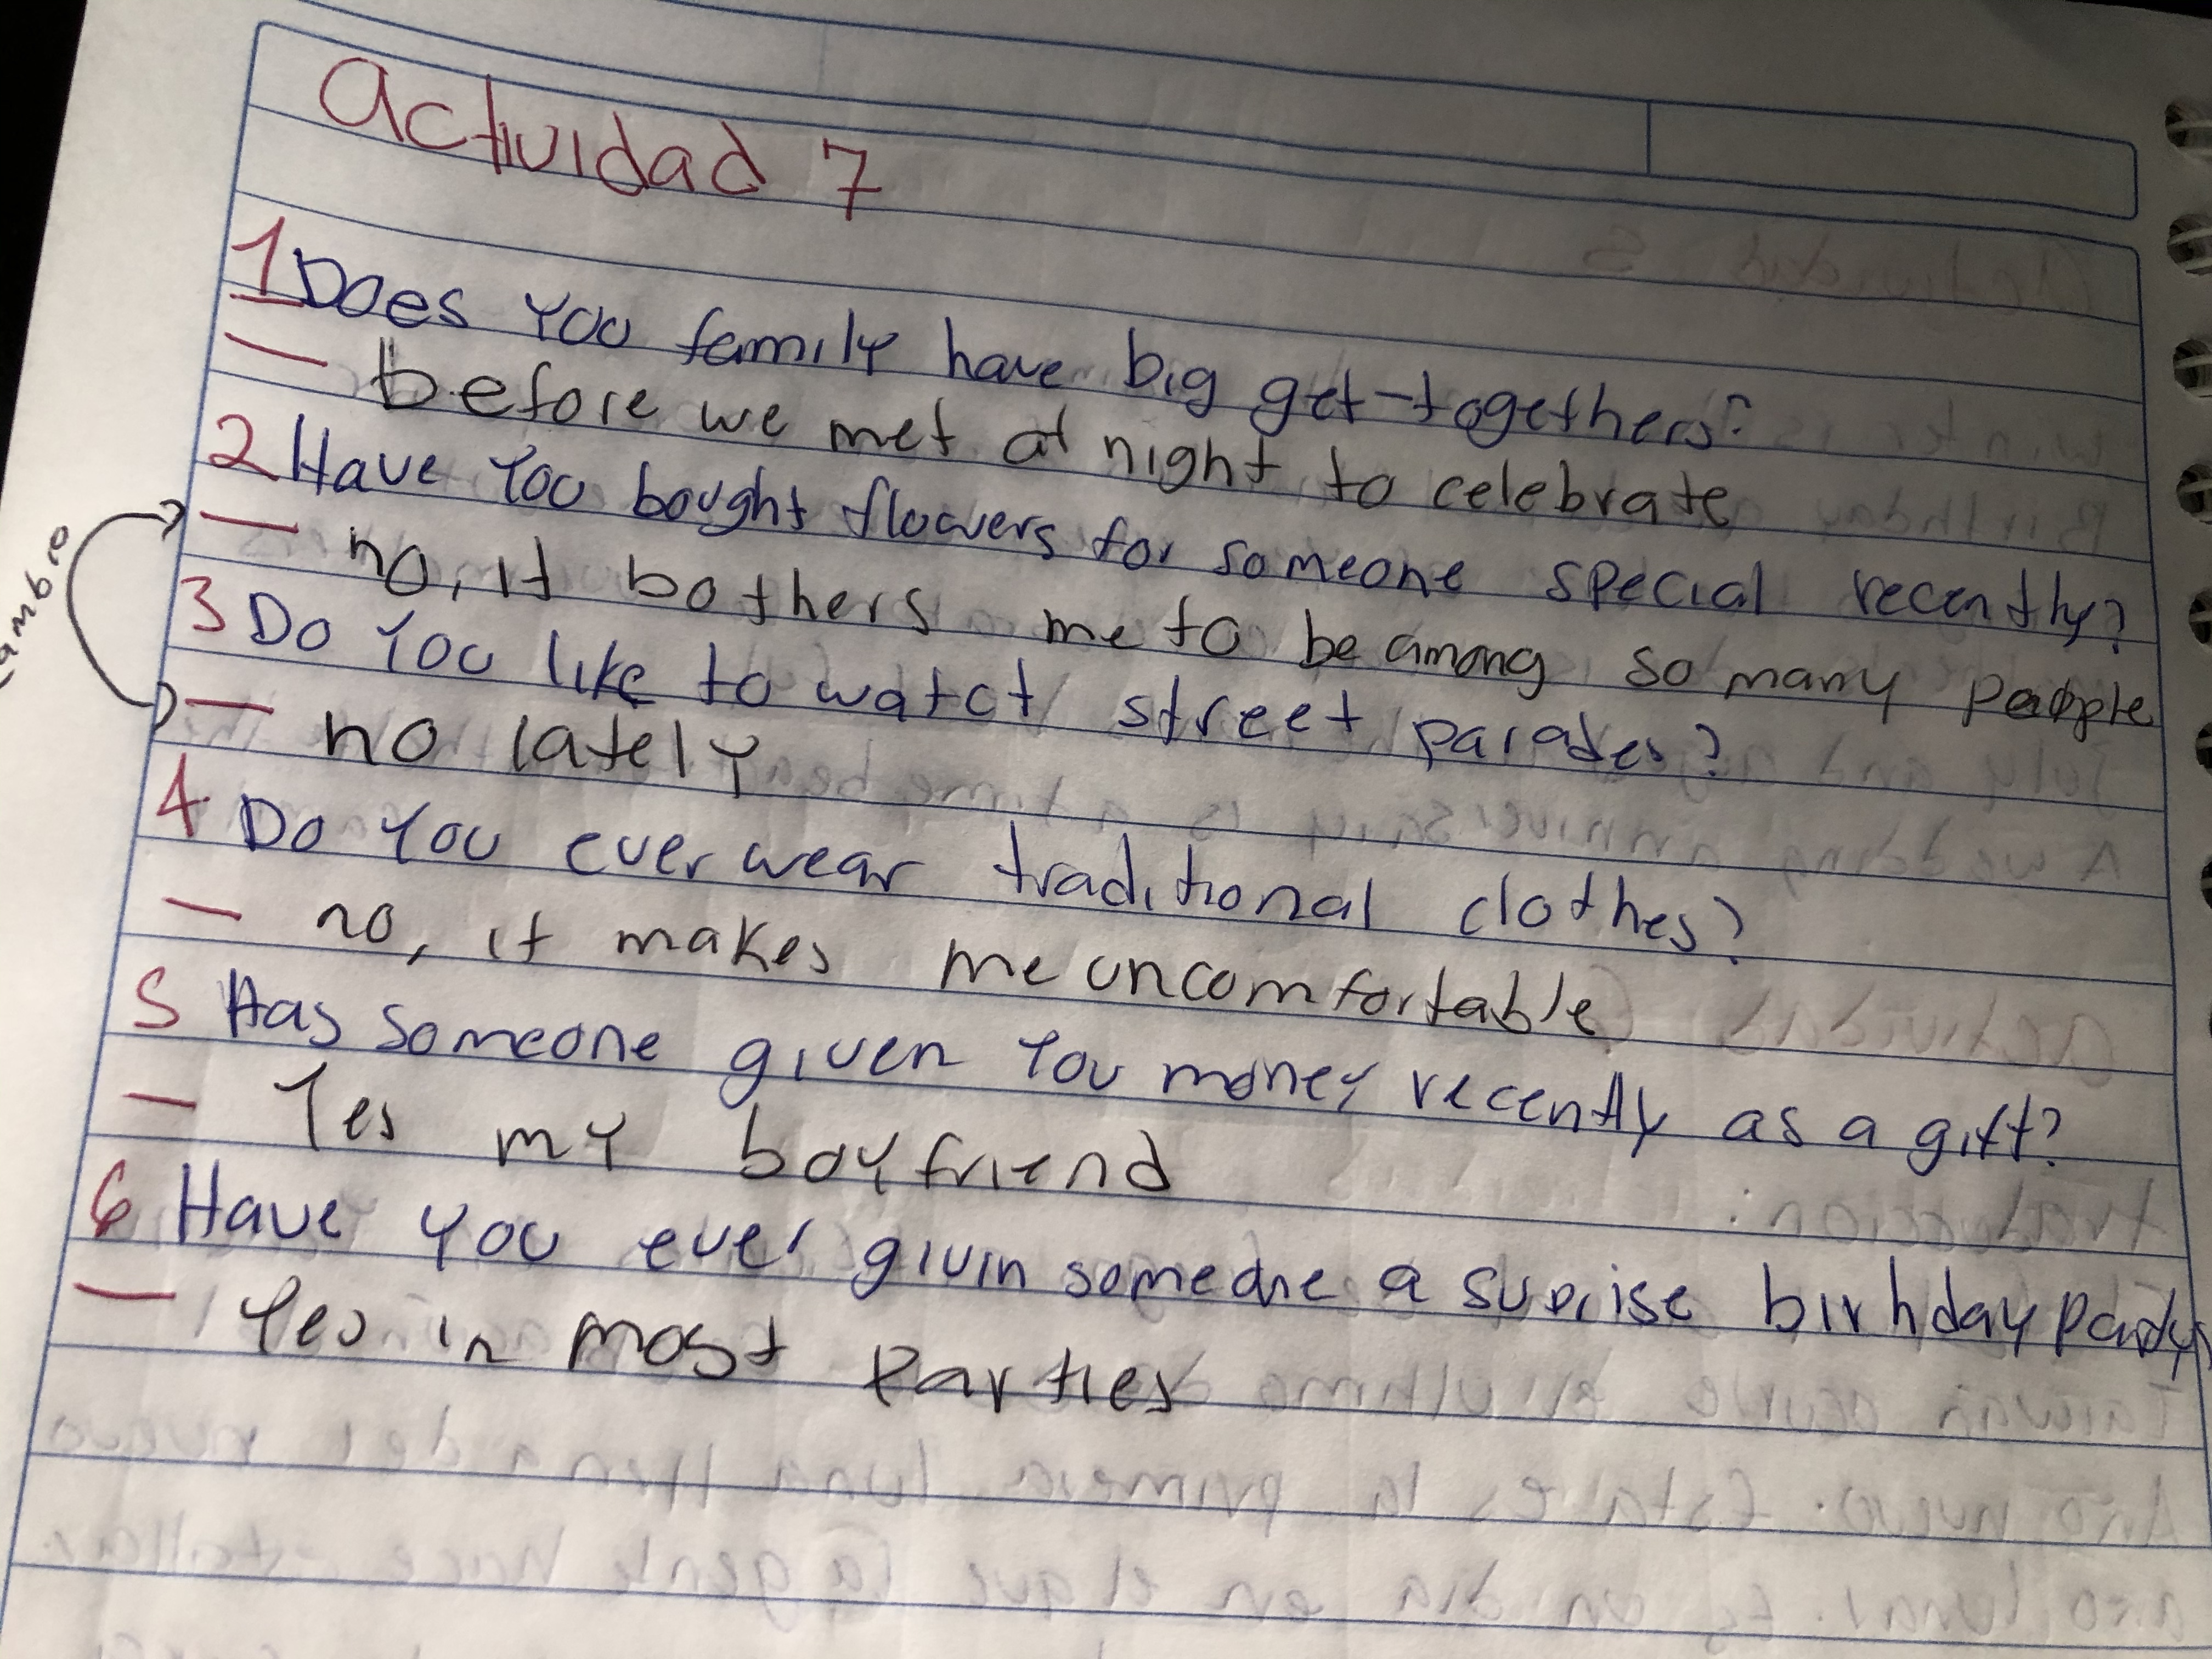 Actividad 7
1 Does you family have big get-togethers?
— before we met at night to celebrate
2 Have you bought flowers for someone special recently?
— no, it bothers me to be among so many people
3 Do you like to watct street parades?
— no lately
4 Do you ever wear traditional clothes?
— no, it makes me uncomfortable
5 Has someone given you money recently as a gift?
— Yes my boyfriend
6 Have you ever givin someone a suprise birhday party?
— Yes in most parties
cambio